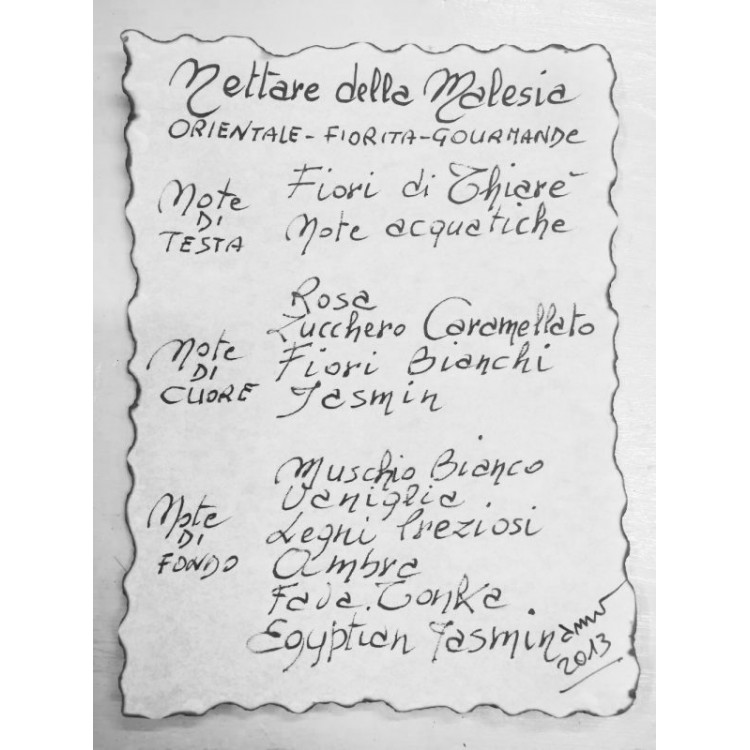 Nettare della Malesia
ORIENTALE - FIORITA - GOURMANDE
Note DI TESTA
Fiori di Thiarè
Note acquatiche
Note DI CUORE
Rosa
Zucchero Caramellato
Fiori Bianchi
Jasmin
Note DI FONDO
Muschio Bianco
Vaniglia
Legni Preziosi
Ambra
Fava. Tonka
Egyptian Jasmin
2013